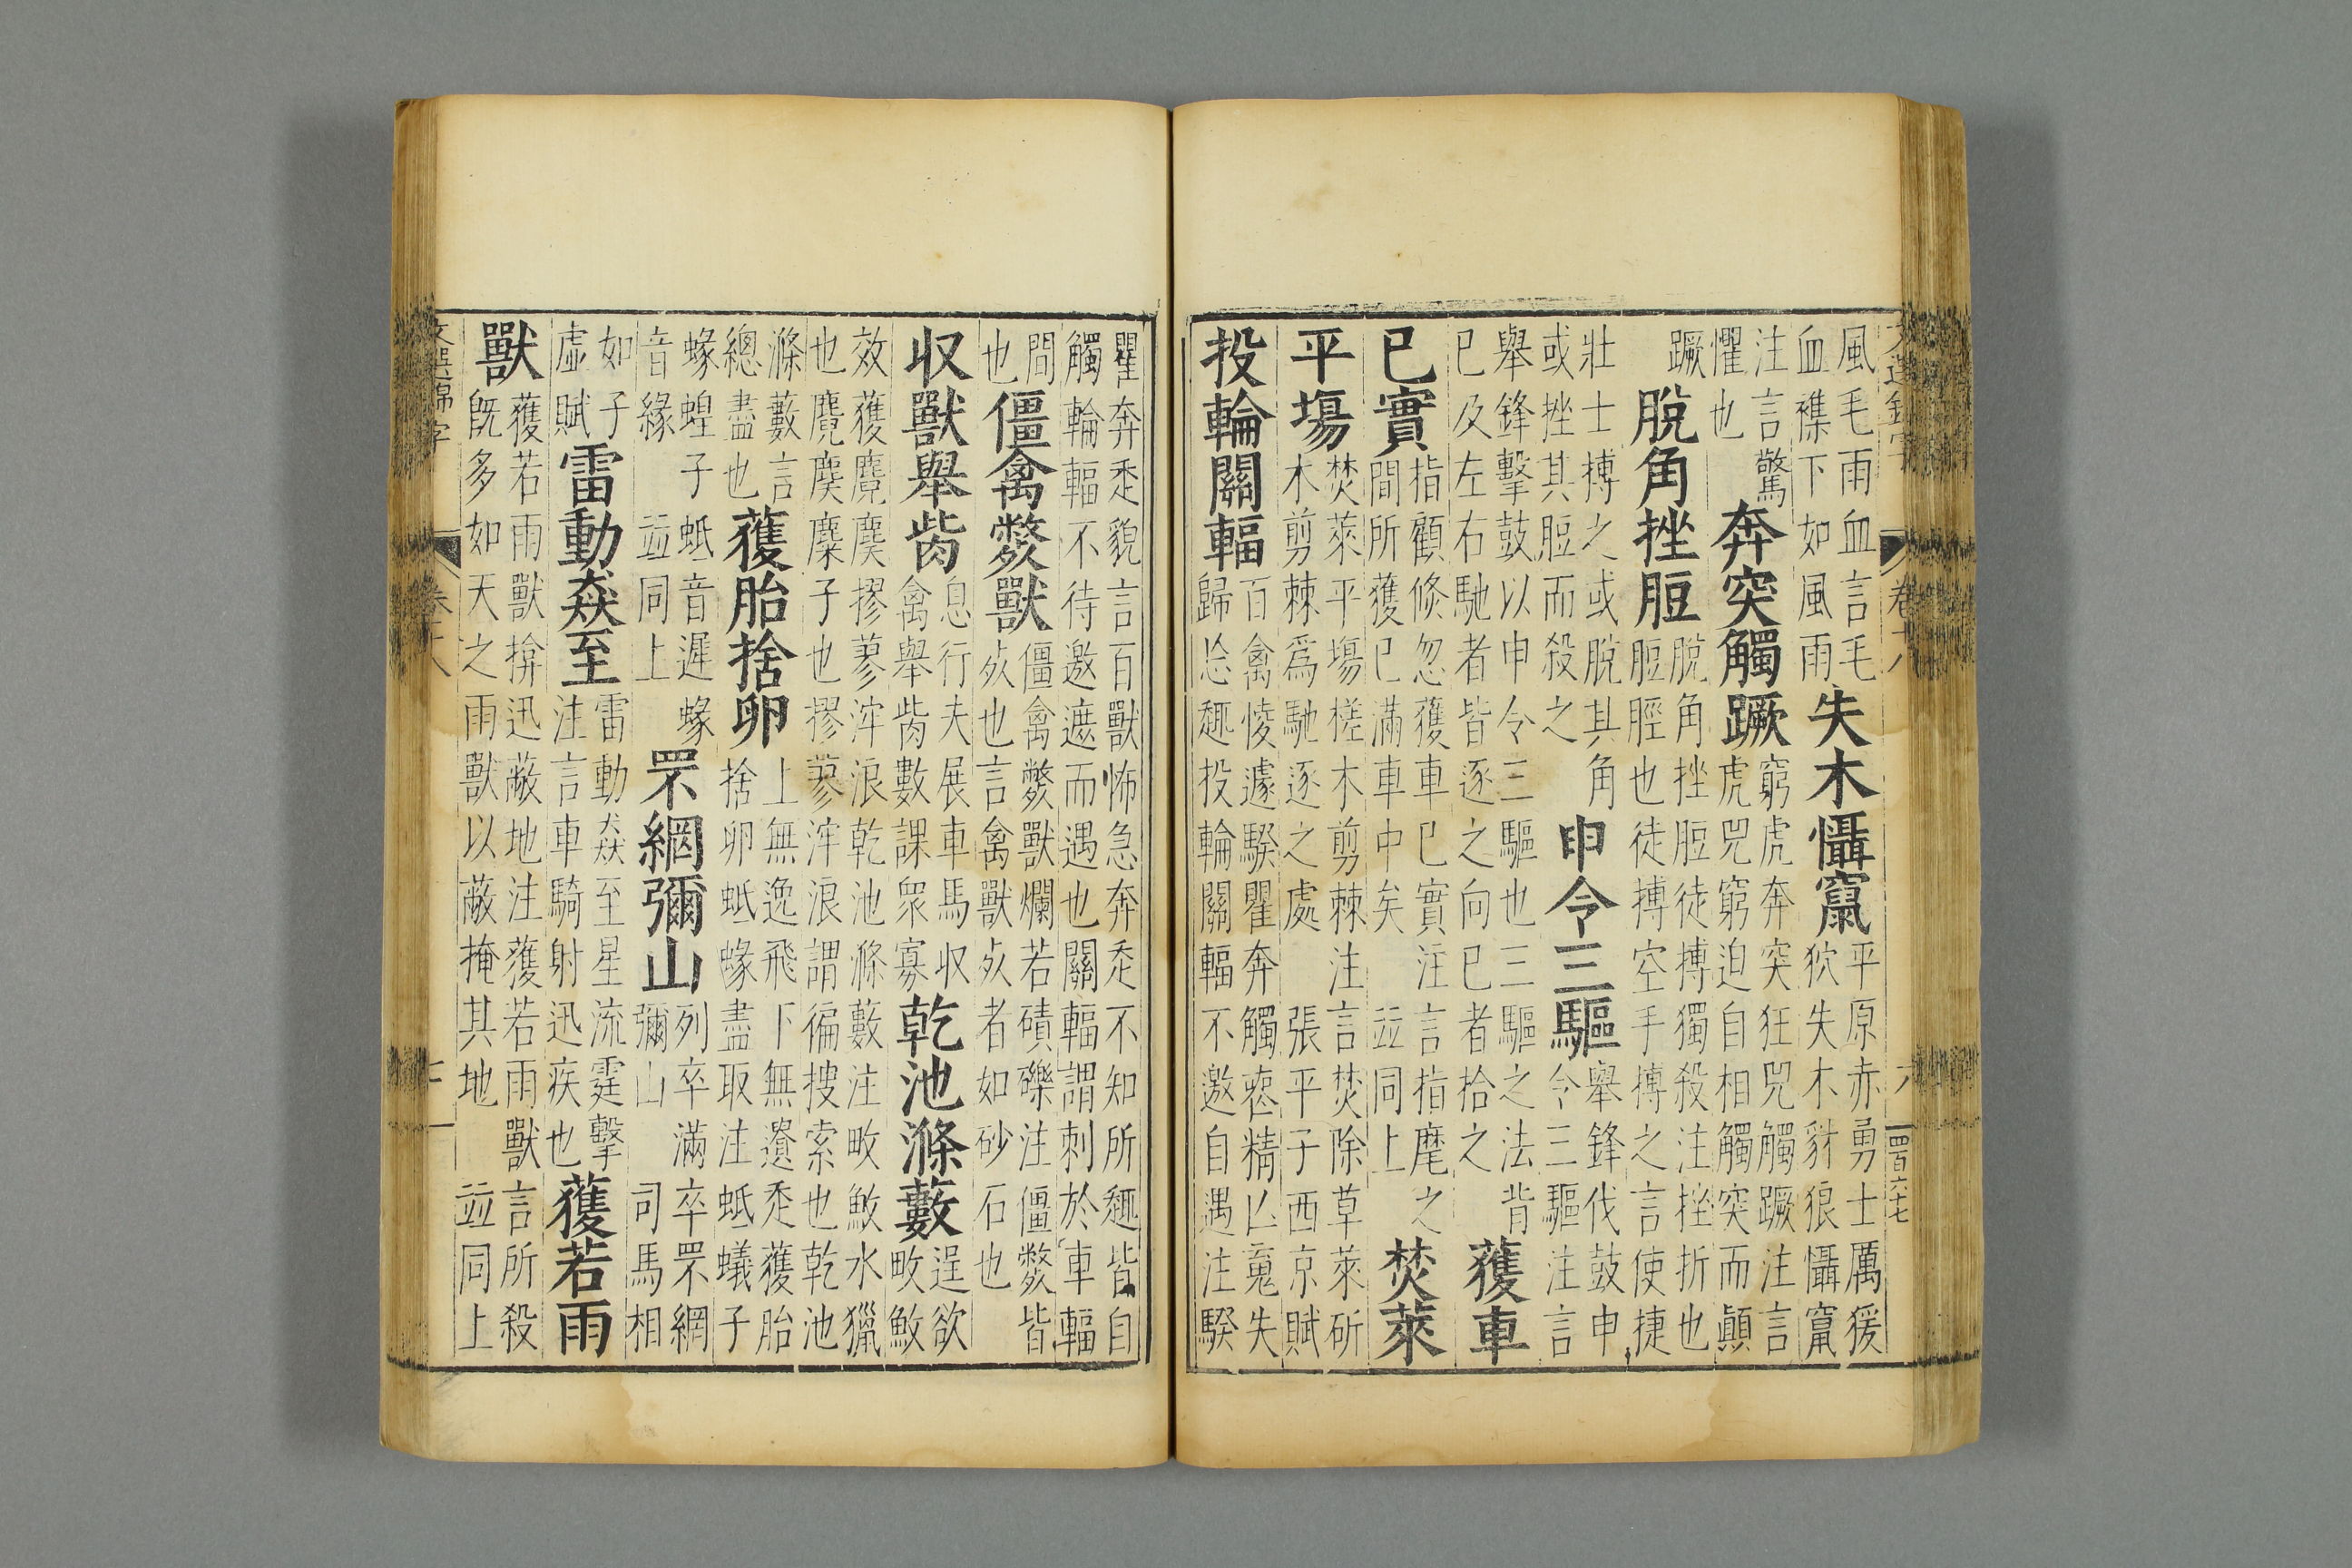 卷十八 六 四百六七
風毛雨血言毛
血襍下如風雨
失木懾竄
平原赤勇士厲猨
狖失木豺狼懾竄
注言驚
懼也
奔突觸蹶
窮虎奔突狂兕觸蹶注言
虎兕窮迫自相觸突而顚
蹶
脫角挫脰
脫角挫脰徒搏獨殺注挫折也
脰脛也徒搏空手搏之言使捷
壯士搏之或脫其角
或挫其脰而殺之
申令三驅
舉鋒伐鼓申
令三驅注言
舉鋒擊鼓以申令三驅也三驅之法背
已及左右馳者皆逐之向已者拾之
獲車
已實
指顧倏忽獲車已實注言指麾之
間所獲已滿車中矣 並同上
焚萊
平塲
焚萊平塲槎木剪棘注言焚除草萊斫
木剪棘爲馳逐之處 張平子西京賦
投輪關輻
百禽㥄遽騤瞿奔觸䘮精亾䰟失
歸忘趣投輪關輻不邀自遇注騤
瞿奔走貌言百獸怖急奔走不知所趣皆自
觸輪輻不待邀遮而遇也關輻謂刺於車輻
間
也
僵禽斃獸
僵禽斃獸爛若磧礫注僵斃皆
死也言禽獸死者如砂石也
収獸舉胔
息行夫展車馬収
禽舉胔數課衆寡
乾池滌藪
逞欲
畋䱷
效獲麑䴠摎蓼浶浪乾池滌藪注畋䱷水獵
也麑䴠麋子也摎蓼浶浪謂徧捜索也乾池
滌藪言
總盡也
獲胎捨卵
上無逸飛下無遺走獲胎
捨卵蚳蝝盡取注蚳蟻子
蝝蝗子蚳音遲蝝
音緣 並同上
罘網彌山
列卒滿卒罘網
彌山 司馬相
如子
虛賦
雷動猋至
雷動猋至星流霆擊
注言車騎射迅疾也
獲若雨
獸
獲若雨獸揜迅蔽地注獲若雨獸言所殺
旣多如天之雨獸以蔽掩其地 並同上